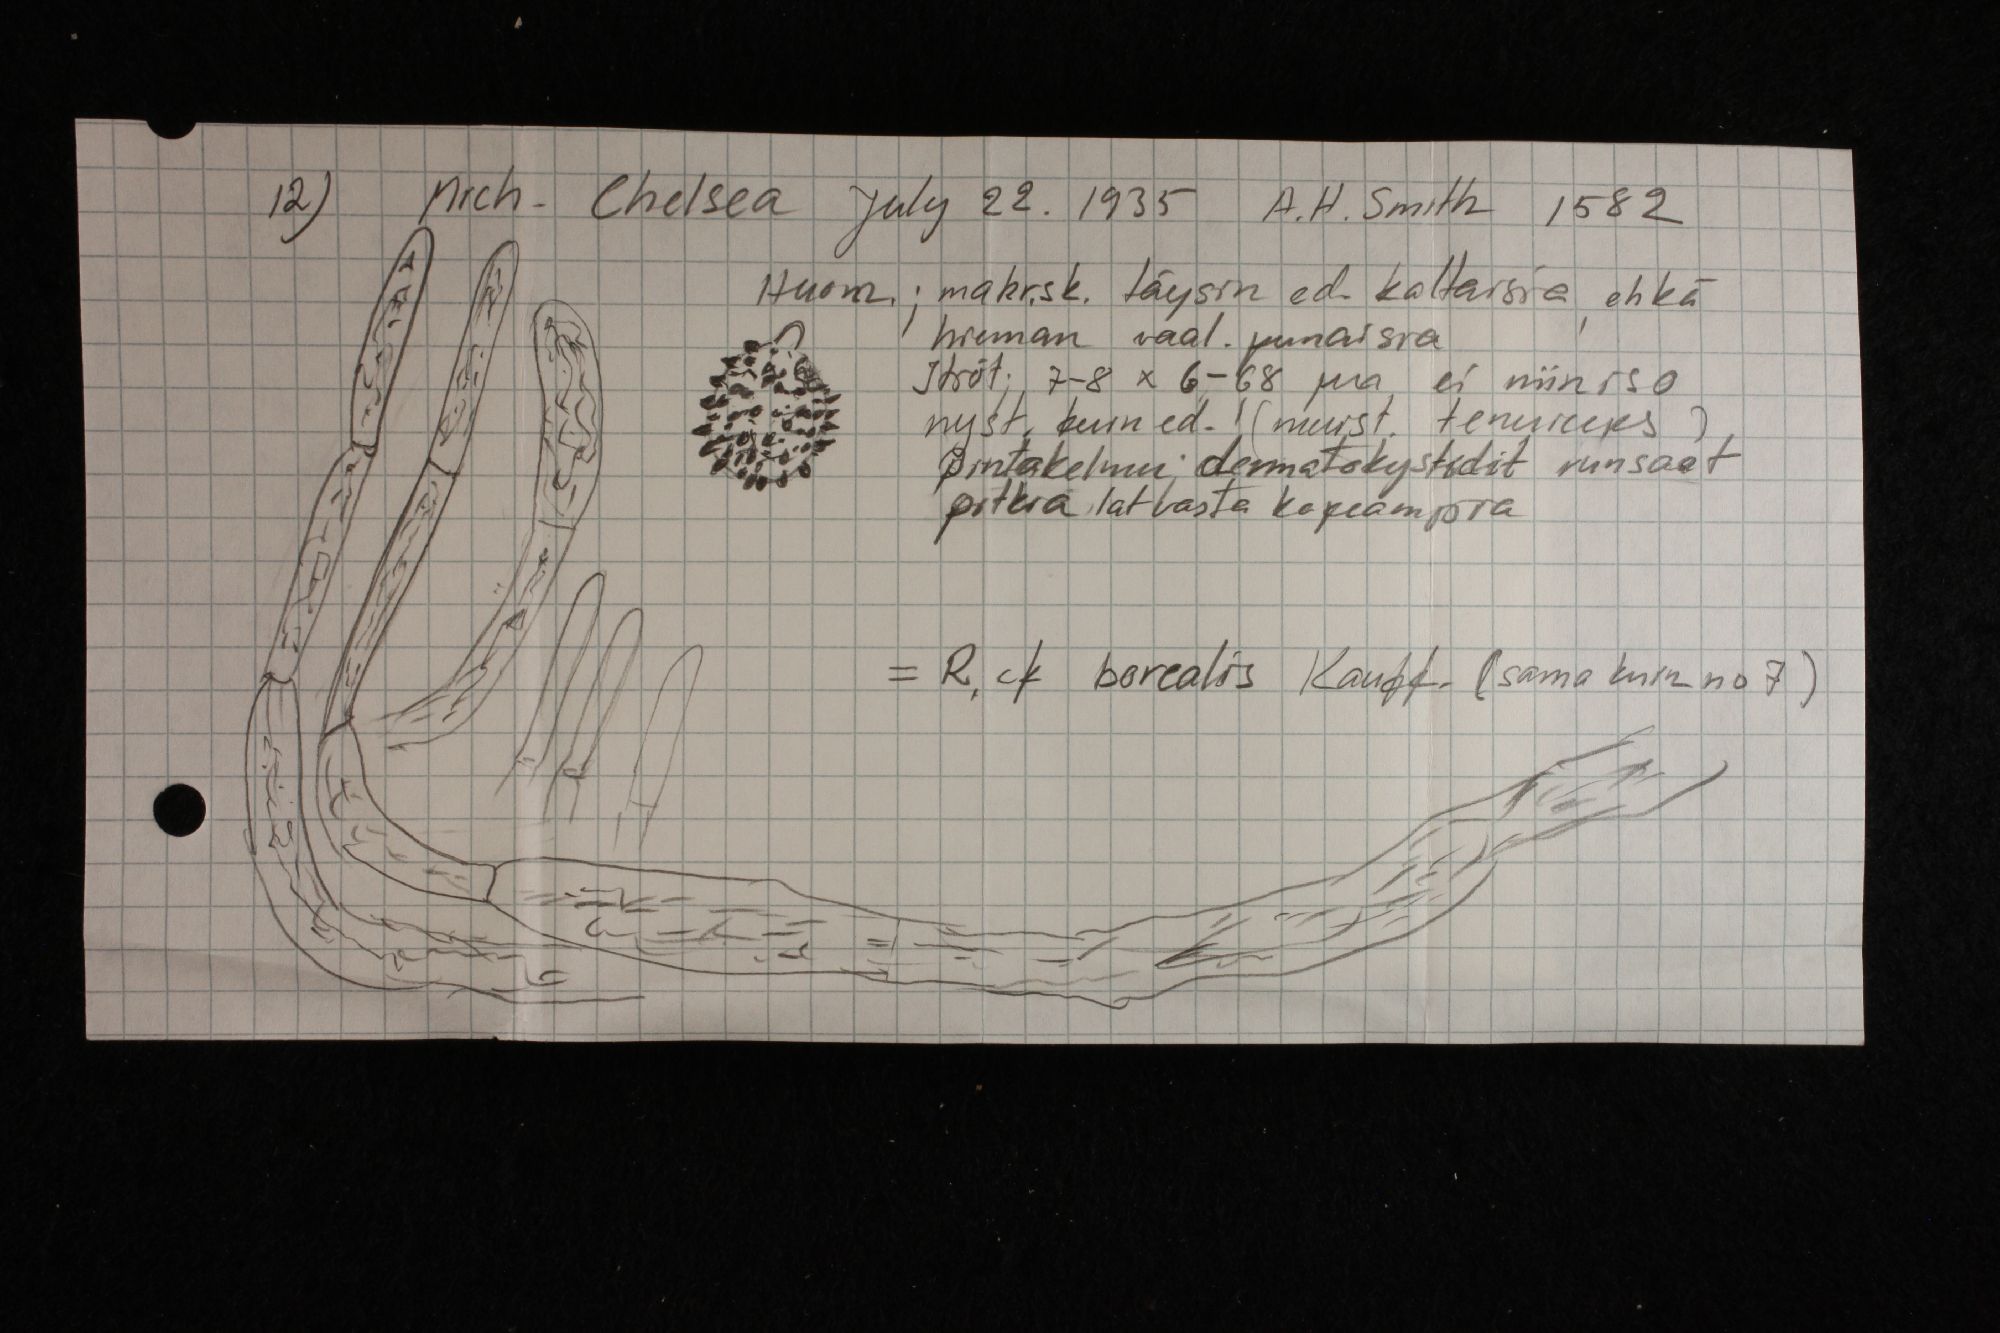 12) Mich. Chelsea July 22. 1935 A.H. Smith 1582
Huom.; makr.sk. täysin ed. kaltaisia, ehkä
hieman vaal. punaisia
Itiöt; 7-8 x 6-6,8 µa ei niin iso
nyst. kuin ed.! (muist. tenuiceps)
pintakelmu; dermatokystidit runsaat
pitkiä, latvasta kapeampia
= R. cf borealis Kauff. (sama kuin no 7)